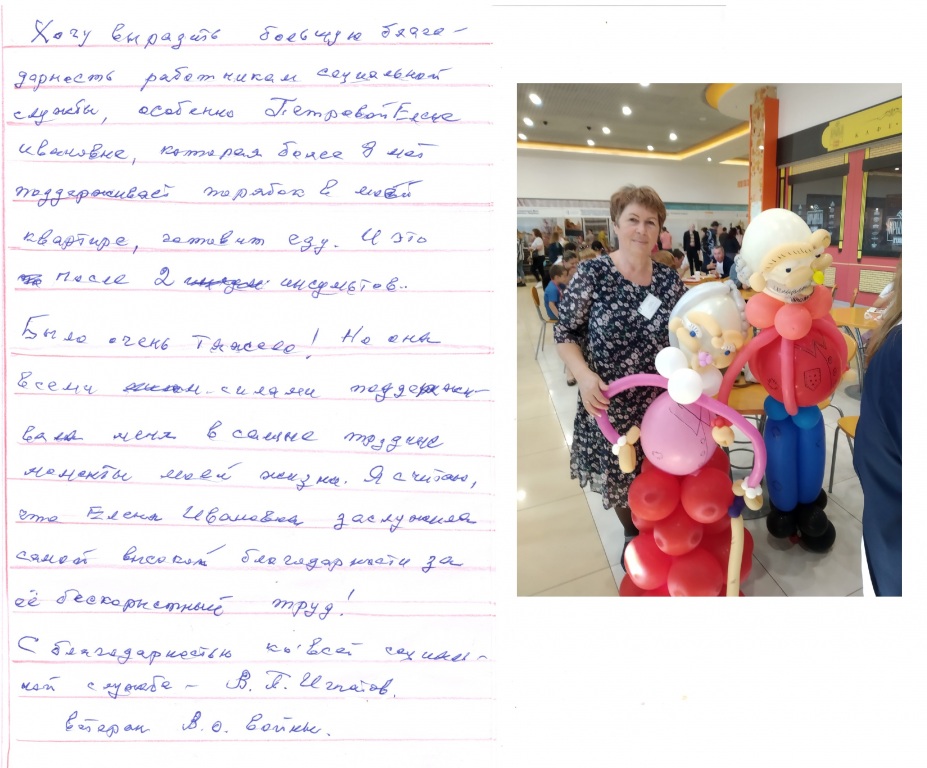 Хочу выразить большую благо-
дарность работникам социальной
службы, особенно Петровой Елене
Ивановне, которая более 9 лет
поддерживает порядок в моей
квартире, готовит еду. И это
после 2 инсультов.
Было очень тяжело! Но она
всеми силами поддержи-
вала меня в самые трудные
моменты моей жизни. Я считаю,
что Елена Ивановна заслужила
самой высокой благодарности за
её бескорыстный труд!
С благодарностью ко всей социаль-
ной службе – В. П. Игнатов.
ветеран В.О. Войны.